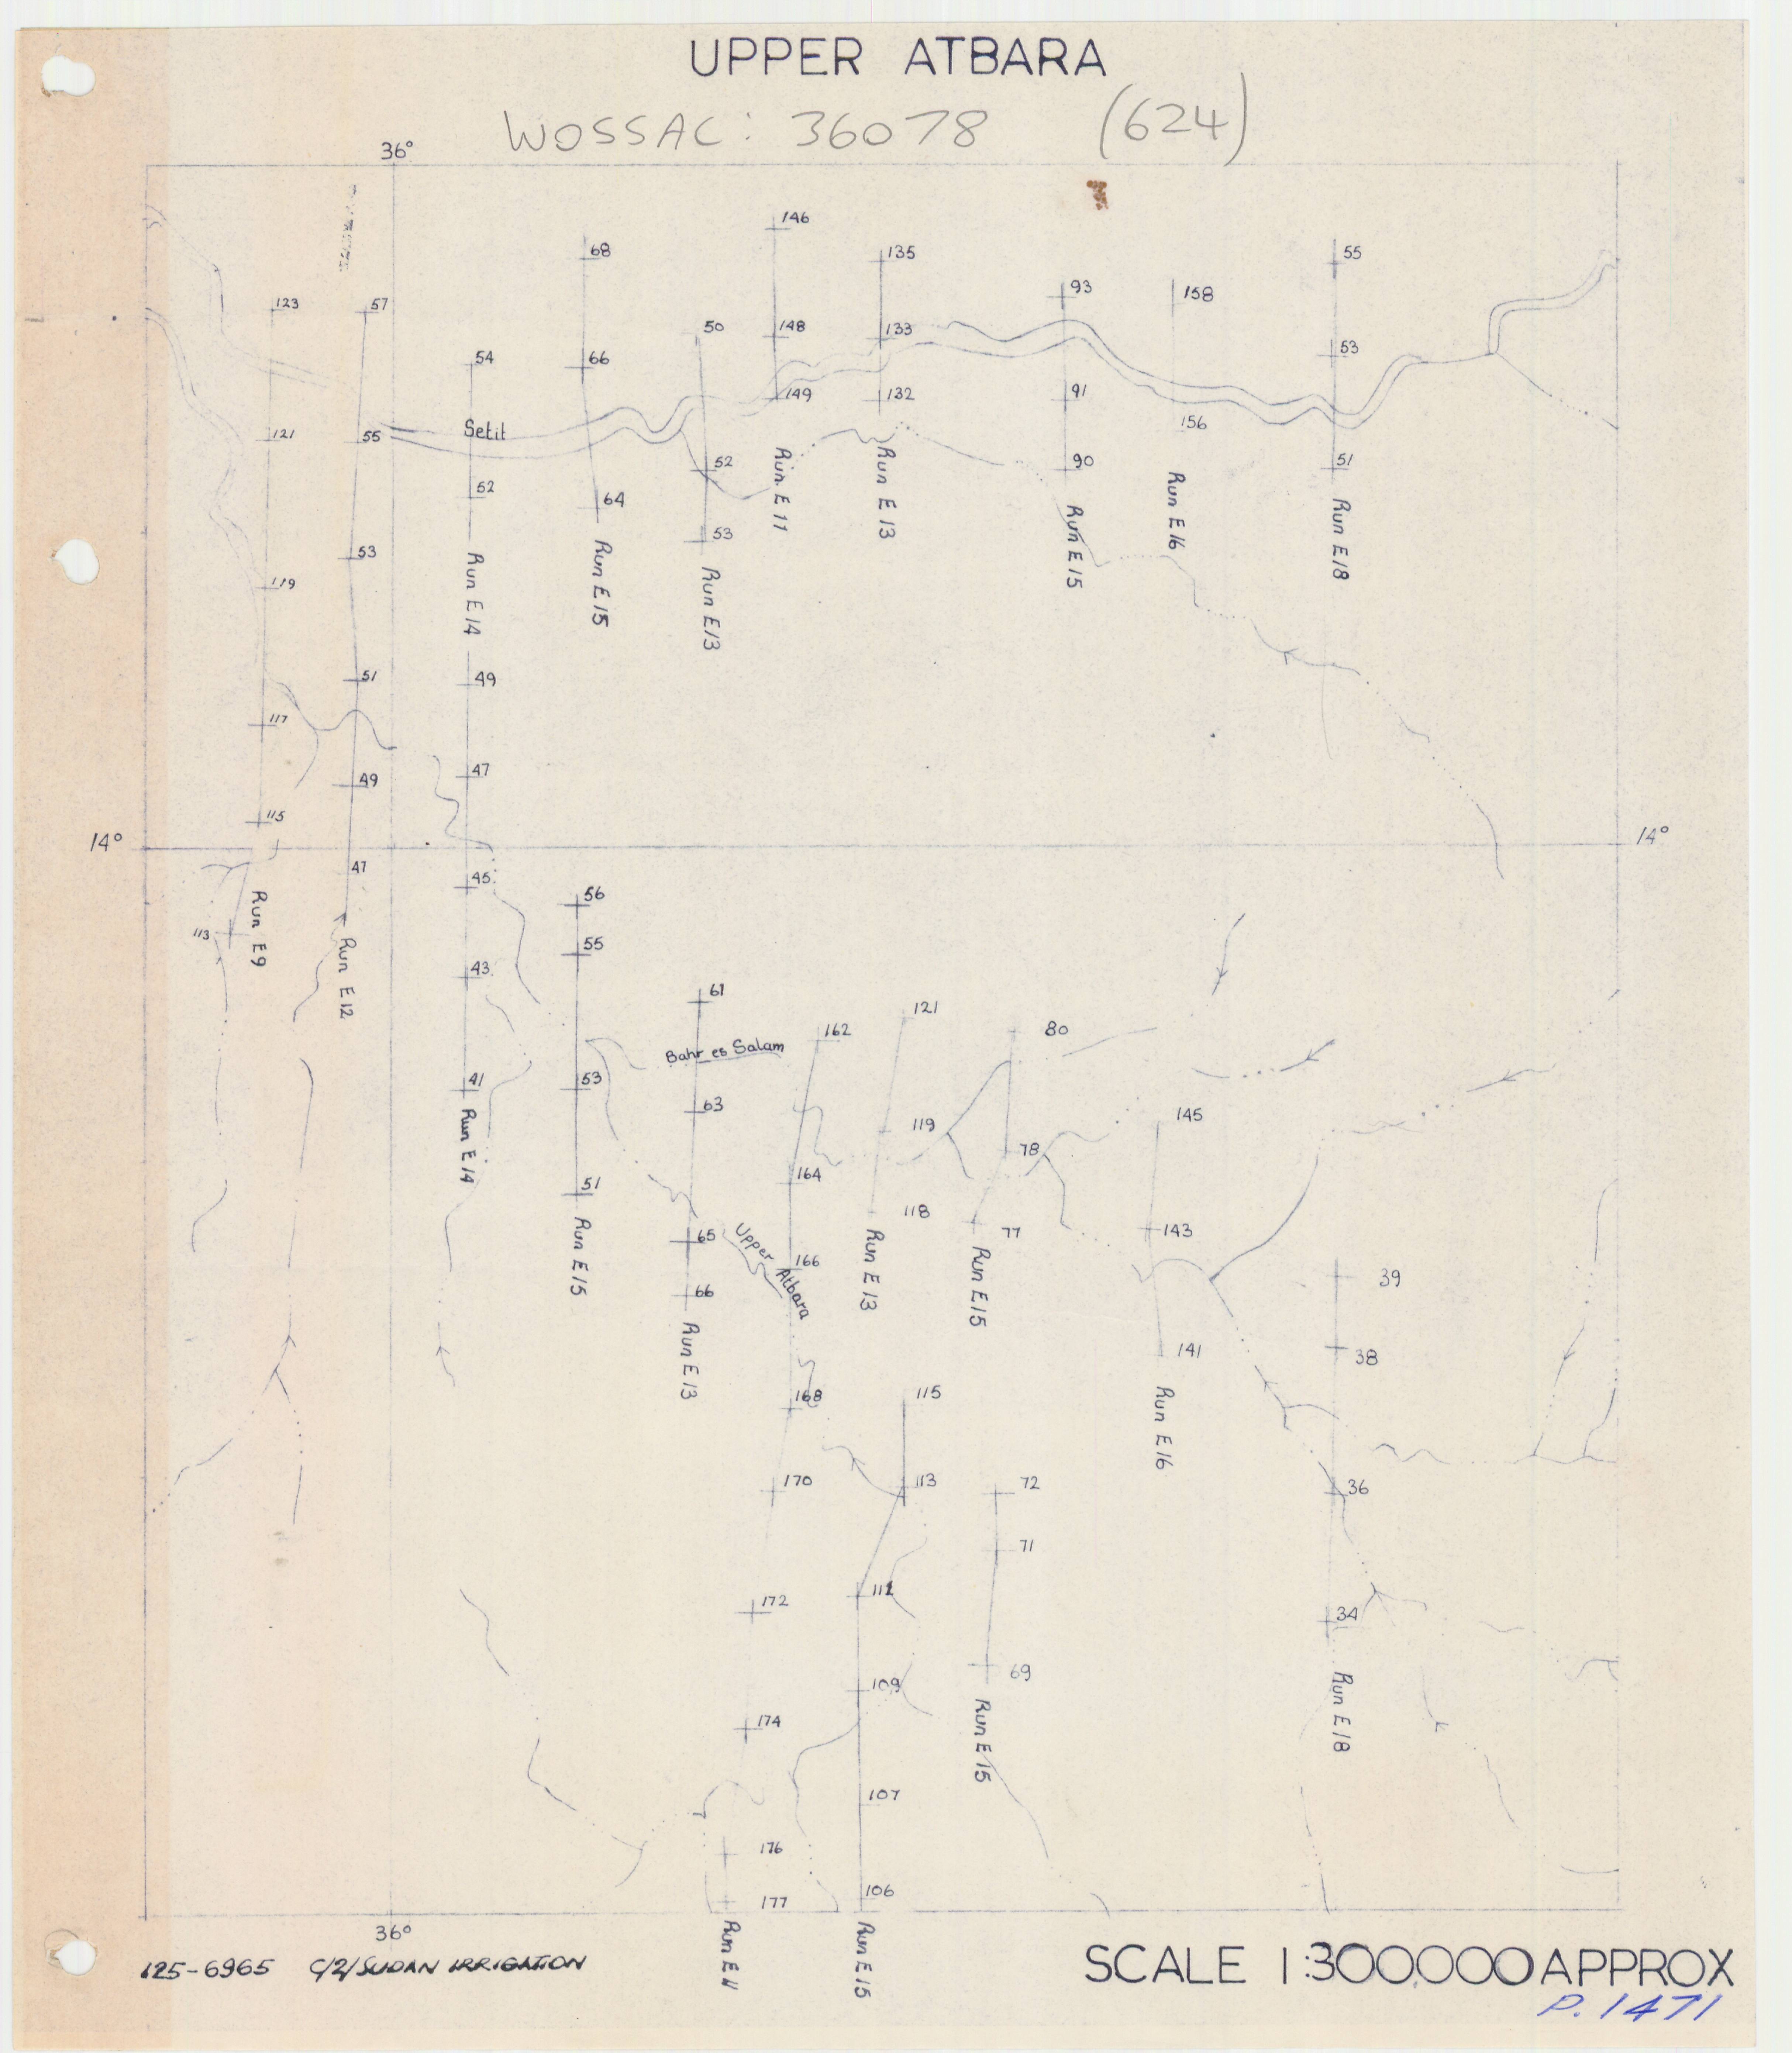 UPPER ATBARA
WOSSAC: 36078 (624)
36°
146
68
135
55
123
57
93
158
50
148
133
54
66
53
149
132
91
121
55
Setit
156
52
90
51
52
64
53
53
119
Run E 11
Run E 13
Run E 15
Run E 16
Run E 18
Run E 14
Run E 15
Run E 13
51
49
117
49
47
115
14°
14°
47
45
56
113
Run E9
55
Run E 12
43
61
121
162
80
Bahr es Salam
41
53
63
119
145
78
164
51
118
143
77
Run E 14
65
Upper Atbara
166
39
Run E 15
66
Run E 13
Run E 15
38
141
Run E 13
168
115
Run E 16
170
113
72
36
71
112
172
34
109
69
174
Run E 15
Run E 18
107
176
106
177
36°
Run E 11
Run E 15
125-6965 C/2/SUDAN IRRIGATION
SCALE 1:300,000 APPROX
P. 1471